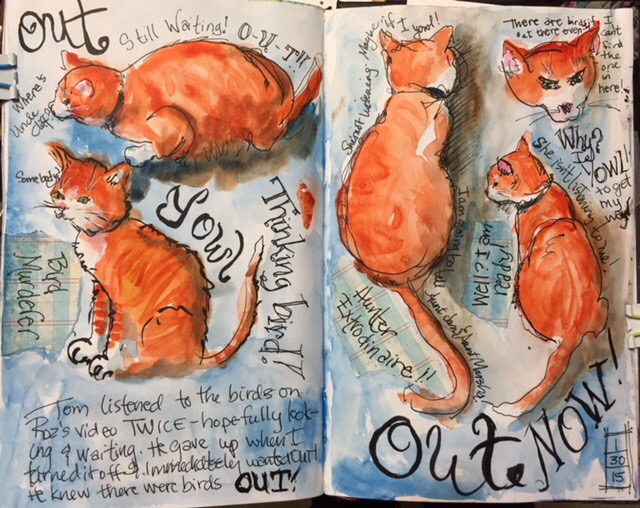 OUT
Still Waiting! O-U-T!!
Where's
Uncle
Somebody
YOWL
Stinking bird!!
Bird
Murderer
Tom listened to the birds on
Roz's video TWICE - hopefully look-
ing & waiting. He gave up when I
turned it off & immediately wanted OUT!
He knew there were birds OUT!
She isn't listening. Maybe if I yowl!
There are birds
out there even
I can't
find
the
one
in
here
Why?
I
YOWL!
to get
my
way
She isn't listening to me!
Well? I'm
ready
Hunter
Extrodinaire!!
OUT NOW!
1
30
15